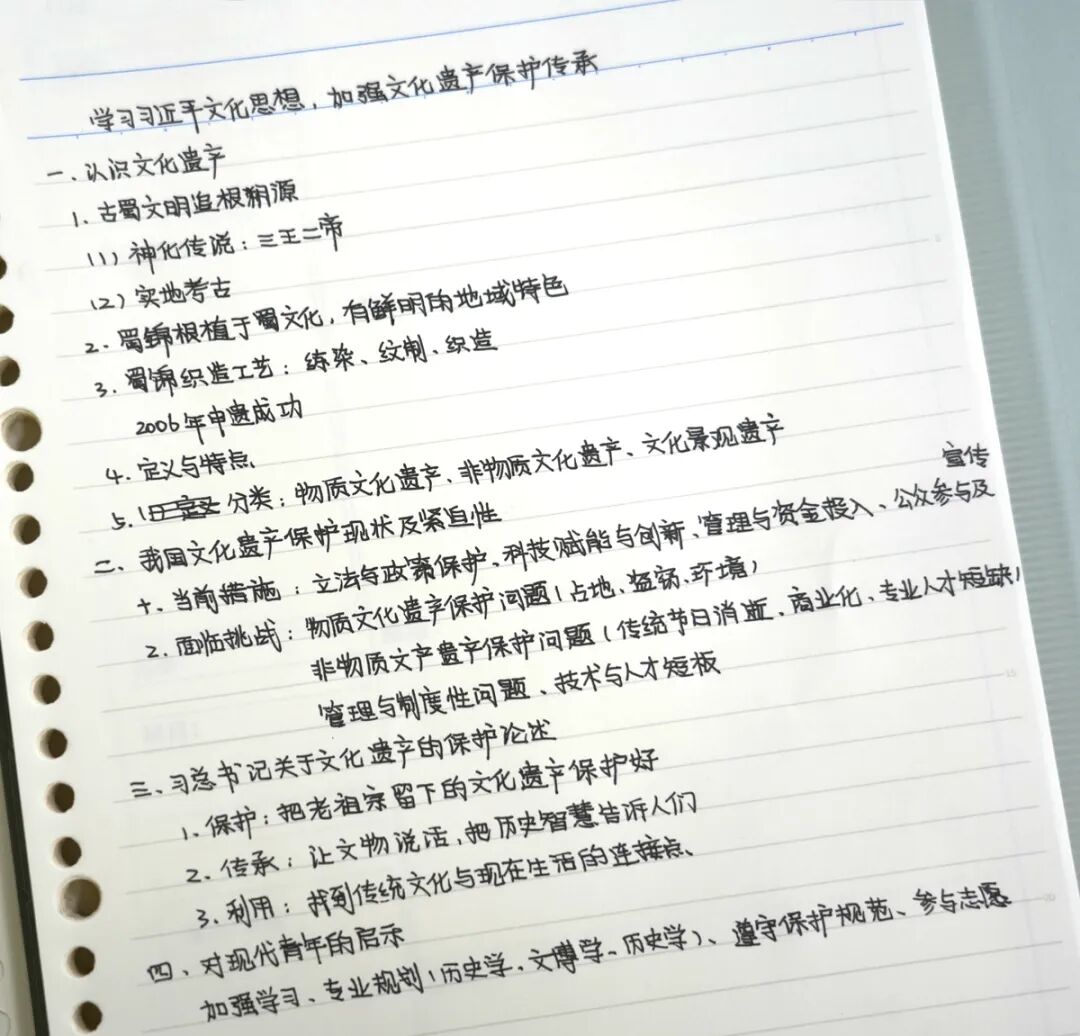 学习习近平文化思想，加强文化遗产保护传承
一、认识文化遗产
1. 古蜀文明追根溯源
(1) 神化传说：三王二帝
(2) 实地考古
2. 蜀锦根植于蜀文化，有鲜明的地域特色
3. 蜀锦织造工艺：练染、纹制、织造
2006年申遗成功
4. 定义与特点
5. 分类：物质文化遗产、非物质文化遗产、文化景观遗产
二、我国文化遗产保护现状及紧迫性
宣传
1. 当前措施：立法与政策保护、科技赋能与创新、管理与资金投入、公众参与及
2. 面临挑战：物质文化遗产保护问题(占地、盗窃、环境)
非物质文产遗产保护问题(传统节日消逝、商业化、专业人才短缺)
管理与制度性问题、技术与人才短板
三、习总书记关于文化遗产的保护论述
1. 保护：把老祖宗留下的文化遗产保护好
2. 传承：让文物说话，把历史智慧告诉人们
3. 利用：找到传统文化与现在生活的连接点
四、对现代青年的启示
加强学习、专业规划(历史学、文博学、历史学)、遵守保护规范、参与志愿